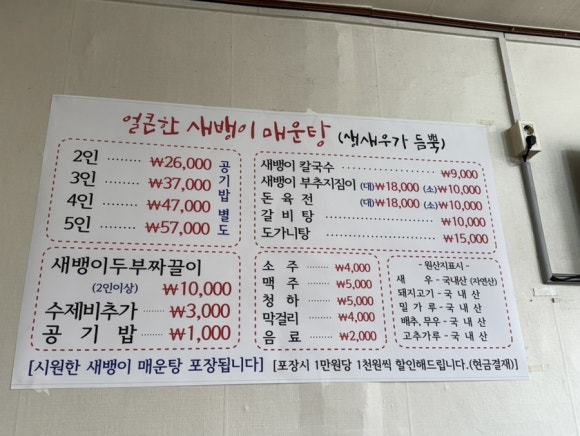 얼큰한 새뱅이 매운탕 (생새우가 듬뿍)
2인 ········ ₩26,000
3인 ········ ₩37,000
4인 ········ ₩47,000
5인 ········ ₩57,000
공기밥별도
새뱅이 칼국수 ········ ₩9,000
새뱅이 부추지짐이 (대)₩18,000 (소)₩10,000
돈육전 (대)₩18,000 (소)₩10,000
갈비탕 ········ ₩10,000
도가니탕 ········ ₩15,000
새뱅이두부짜끌이
(2인이상) ₩10,000
수제비추가 ₩3,000
공기밥 ₩1,000
소주 ········ ₩4,000
맥주 ········ ₩5,000
청하 ········ ₩5,000
막걸리 ········ ₩4,000
음료 ········ ₩2,000
- 원산지표시 -
새우 - 국내산 (자연산)
돼지고기 - 국내산
밀가루 - 국내산
배추, 무우 - 국내산
고추가루 - 국내산
[시원한 새뱅이 매운탕 포장됩니다] [포장시 1만원당 1천원씩 할인해드립니다.(현금결재)]